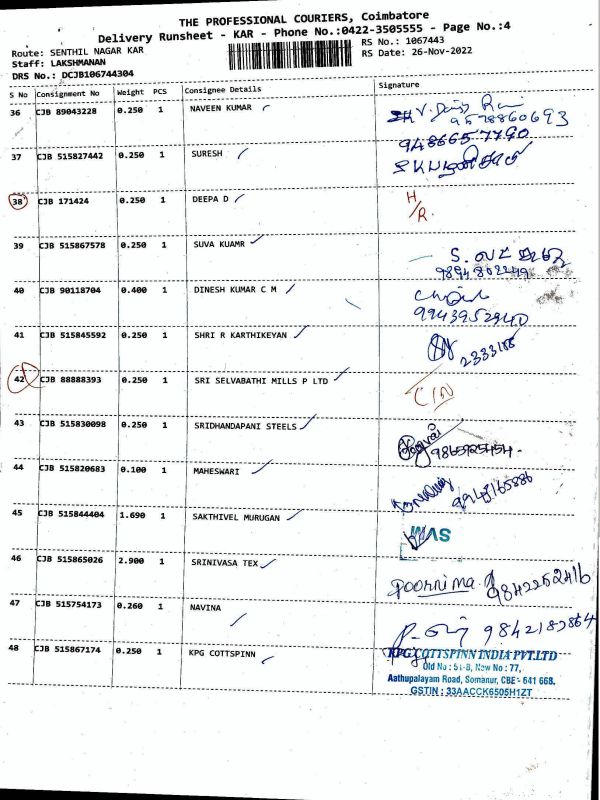 THE PROFESSIONAL COURIERS, Coimbatore
Delivery Runsheet - KAR - Phone No.:0422-3505555 - Page No.:4
Route: SENTHIL NAGAR KAR
RS No.: 1067443
Staff: LAKSHMANAN
RS Date: 26-Nov-2022
DRS No.: DCJB106744304
S No Consignment No Weight PCS Consignee Details Signature
36 CJB 89043228 0.250 1 NAVEEN KUMAR
9578860693
9486657790
37 CJB 515827442 0.250 1 SURESH
38 CJB 171424 0.250 1 DEEPA D H/R.
39 CJB 515867578 0.250 1 SUVA KUAMR
40 CJB 90118704 0.400 1 DINESH KUMAR C M
9943952940
41 CJB 515845592 0.250 1 SHRI R KARTHIKEYAN
42 CJB 88888393 0.250 1 SRI SELVABATHI MILLS P LTD C/N
43 CJB 515830098 0.250 1 SRIDHANDAPANI STEELS
44 CJB 515820683 0.100 1 MAHESWARI
45 CJB 515844404 1.690 1 SAKTHIVEL MURUGAN
46 CJB 515865026 2.900 1 SRINIVASA TEX
Poornima 9842252416
47 CJB 515754173 0.260 1 NAVINA
9842182864
48 CJB 515867174 0.250 1 KPG COTTSPINN
KPG COTTSPINN INDIA PVT.LTD
Old No : 51-8, New No : 77,
Aathupalayam Road, Somanur, CBE - 641 668.
GSTIN : 33AACCK6505H1ZT